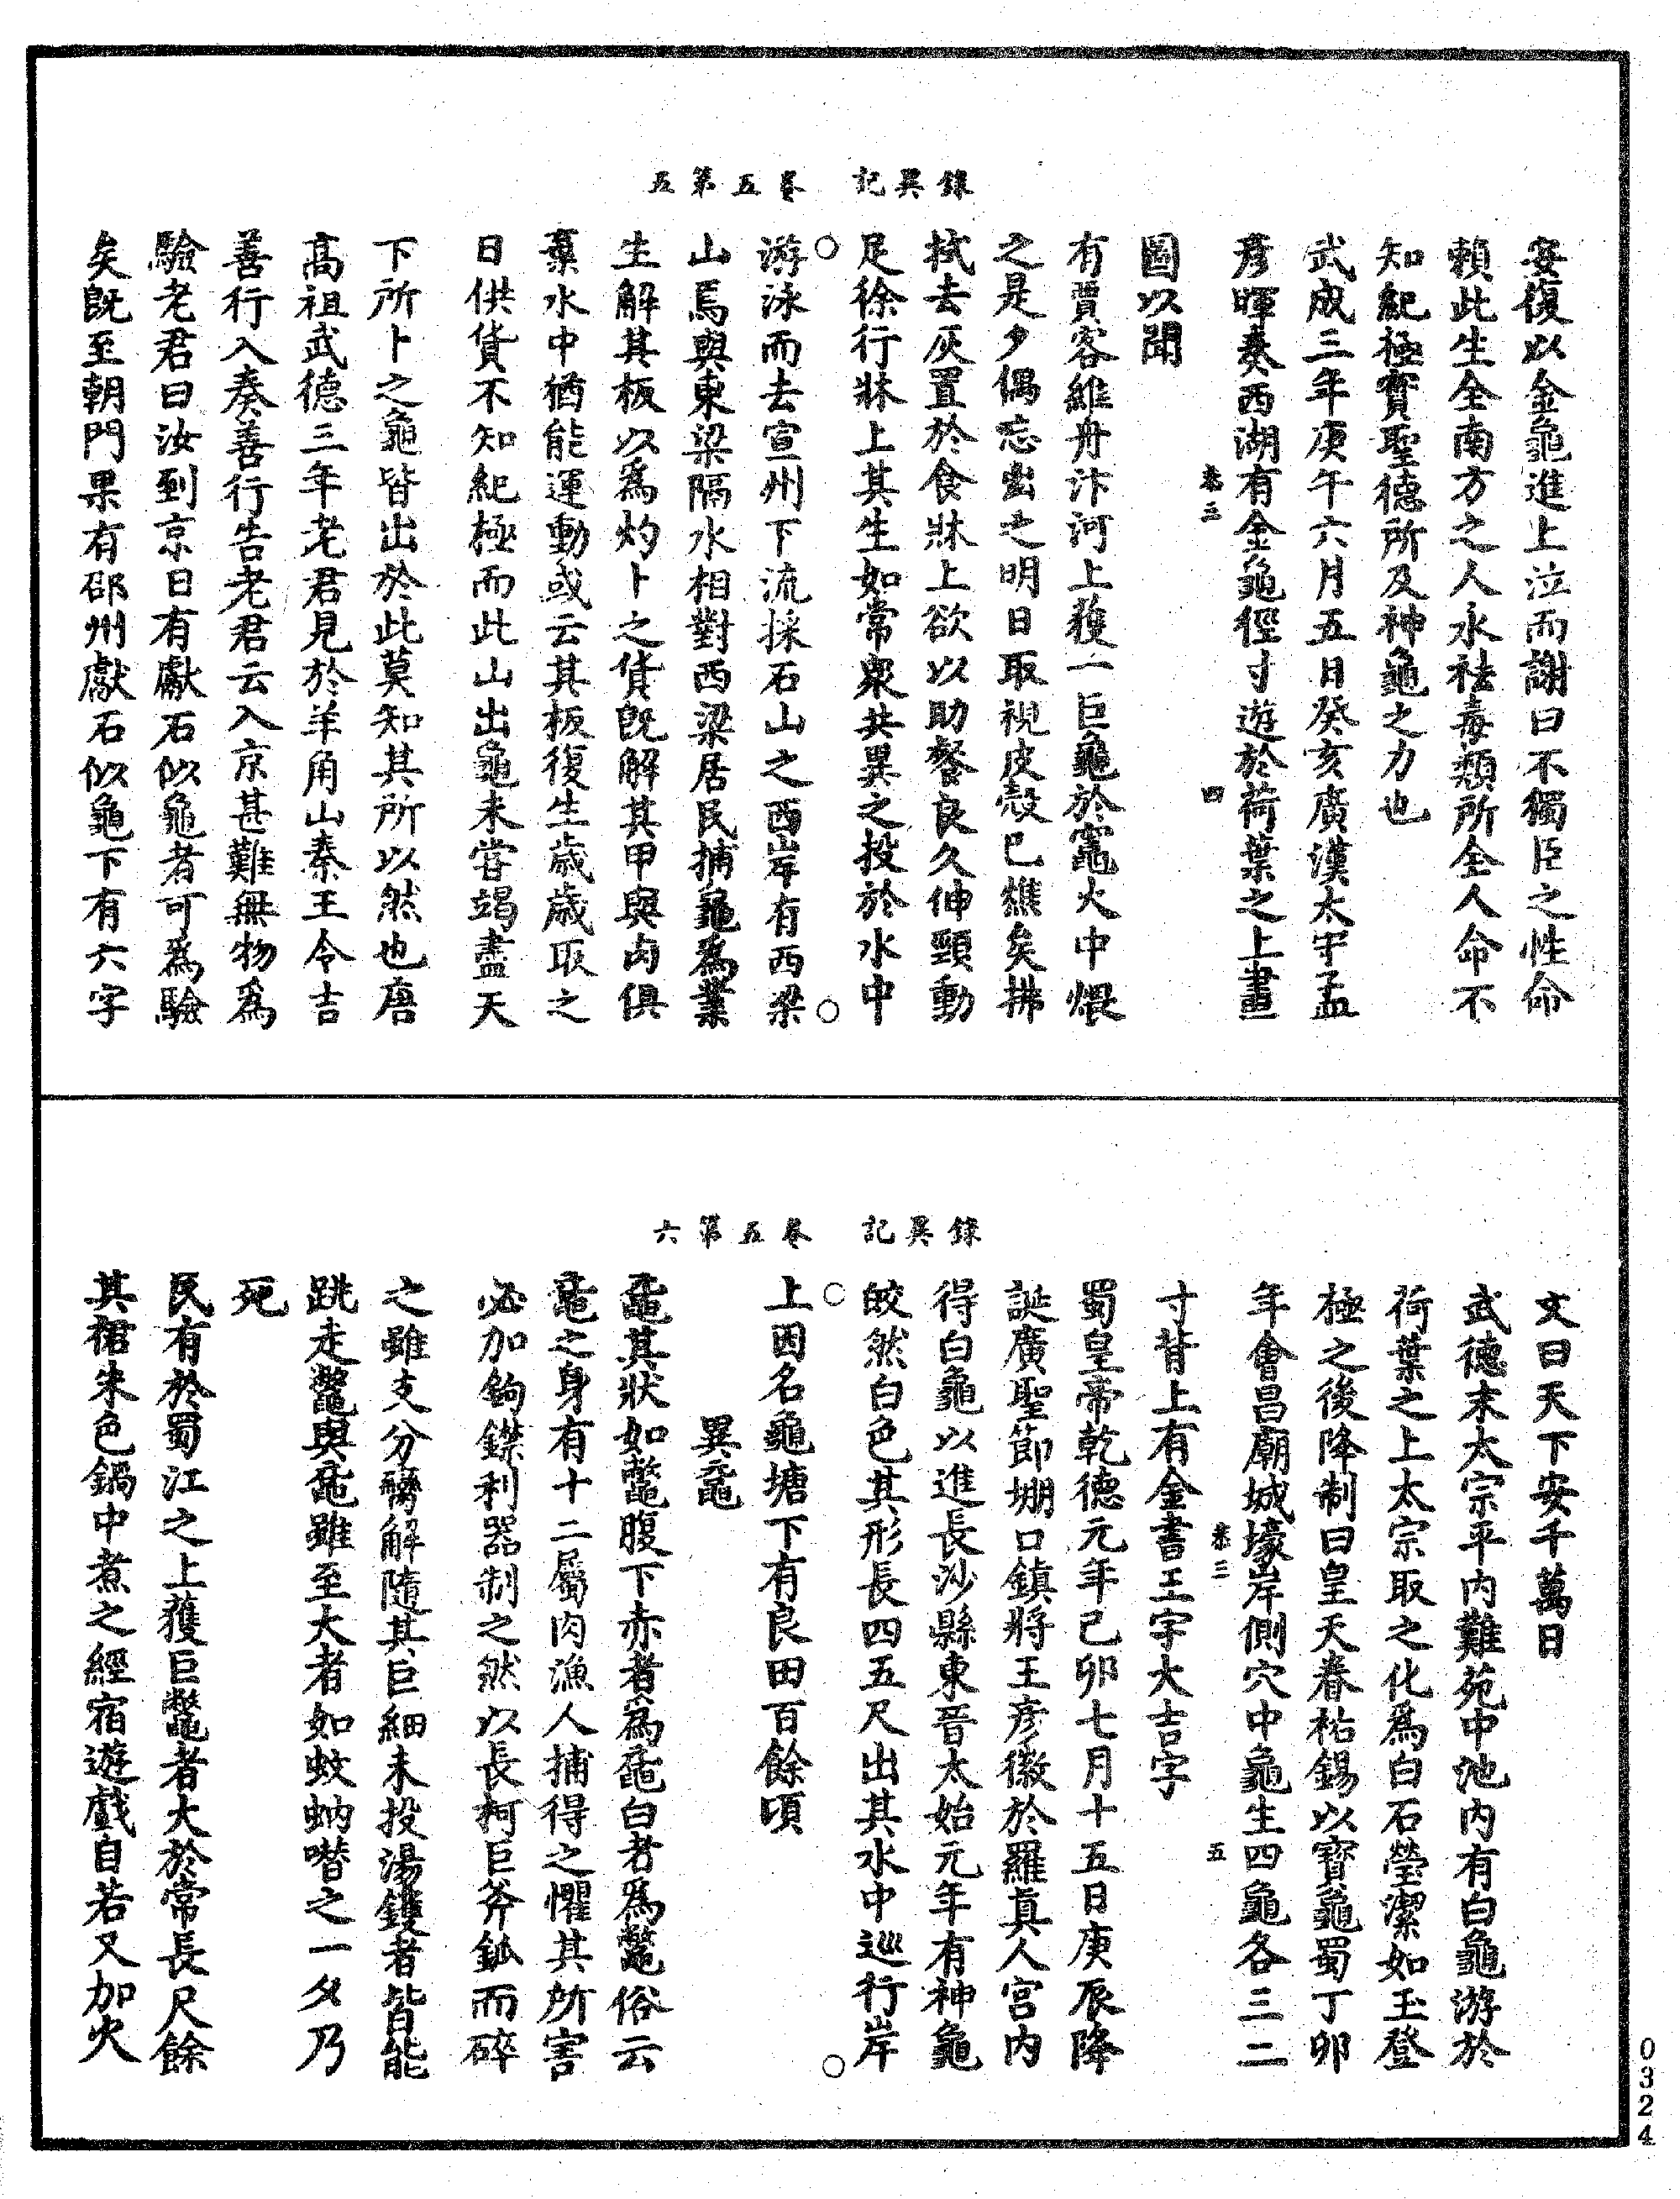 錄異記 卷五第五
安復以金龜進上泣而謝曰不獨臣之性命
賴此生全南方之人永祛毒類所全人命不
知紀極實聖德所及神龜之力也
武成三年庚午六月五日癸亥廣漢太守孟
彥暉奏西湖有金龜徑寸遊於荷葉之上畫
卷三 四
圖以聞
有賈客維舟汴河上獲一巨龜於竈火中煨
之是夕偶忘出之明日取視皮殼已燋矣拂
拭去灰置於食牀上欲以助餐良久伸頸動
足徐行牀上其生如常衆共異之投於水中
游泳而去宣州下流採石山之西岸有西梁
山焉與東梁隔水相對西梁居民捕龜為業
生解其板以為灼卜之貨旣解其甲與肉俱
棄水中猶能運動或云其板復生歲歲取之
日供貨不知紀極而此山出龜未嘗竭盡天
下所卜之龜皆出於此莫知其所以然也唐
高祖武德三年老君見於羊角山秦王令吉
善行入奏善行告老君云入京甚難無物爲
驗老君曰汝到京日有獻石似龜者可爲驗
矣旣至朝門果有邵州獻石似龜下有六字
錄異記 卷五第六
文曰天下安千萬日
武德末太宗平內難苑中池內有白龜游於
荷葉之上太宗取之化爲白石瑩潔如玉登
極之後降制曰皇天眷祐錫以寶龜蜀丁卯
年會昌廟城壕岸側穴中龜生四龜各三二
卷三 五
寸背上有金書王字大吉字
蜀皇帝乾德元年己卯七月十五日庚辰降
誕廣聖節堋口鎮將王彥徽於羅真人宮內
得白龜以進長沙縣東晉太始元年有神龜
皎然白色其形長四五尺出其水中巡行岸
上因名龜塘下有良田百餘頃
異黿
黿其狀如鼈腹下赤者爲黿白者爲鼈俗云
黿之身有十二屬肉漁人捕得之懼其所害
必加鉤鎝利器制之然以長柯巨斧釽而碎
之雖支分臠解隨其巨細未投湯鑊者皆能
跳走鼈與黿雖至大者如蚊蚋噆之一夕乃
死
民有於蜀江之上獲巨鼈者大於常長尺餘
其裙朱色鍋中煮之經宿遊戲自若又加火
0324